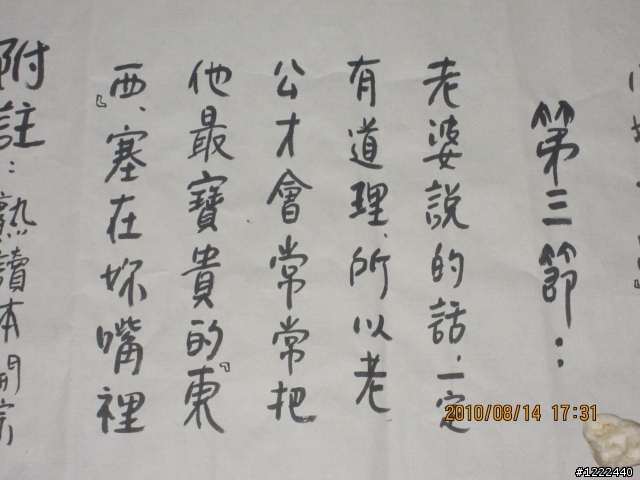 第三節：
老婆說的話、一定
有道理、所以老
公才會常常把
他最寶貴的『東
西、』塞在妳嘴裡
附註：熟讀本開宗
2010/08/14 17:31
#1222440